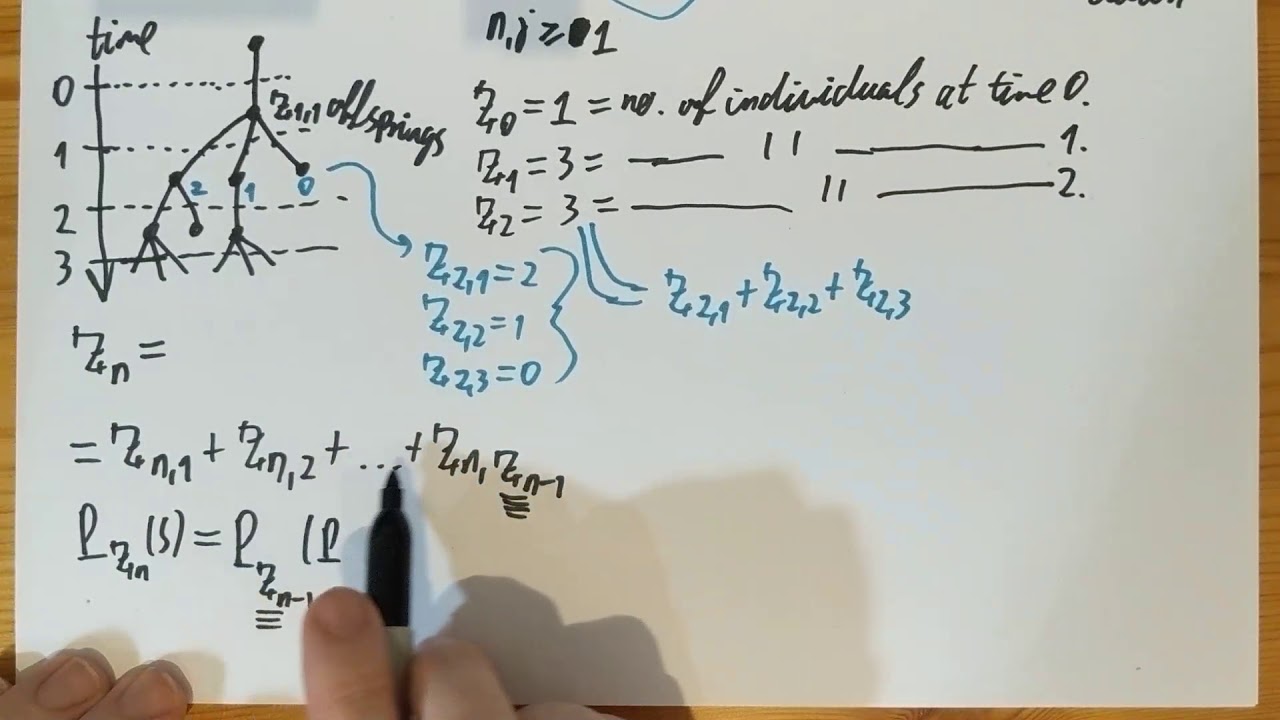 n,j ≥ 1
time
0
1
2
3
Z₁,₁ offsprings
2 1 0
Z₀ = 1 = no. of individuals at time 0.
Z₁ = 3 = —— 11 —— 1.
Z₂ = 3 = —— 11 —— 2.
Z₂,₁ = 2
Z₂,₂ = 1
Z₂,₃ = 0
Z₂,₁ + Z₂,₂ + Z₂,₃
Zₙ =
= Zₙ,₁ + Zₙ,₂ + ... + Zₙ, Zₙ₋₁
P_Zₙ (s) = P_Zₙ₋₁ (P